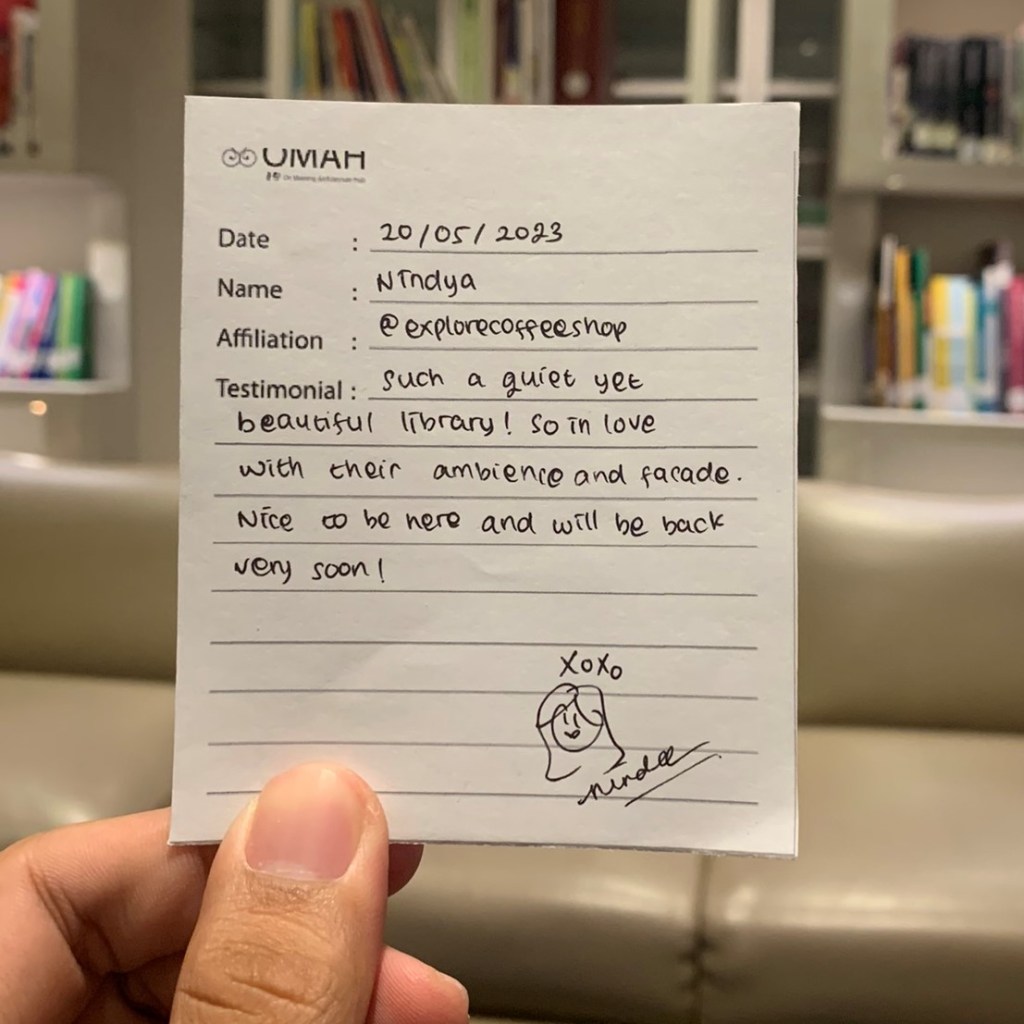 UMAH
Date : 20/05/2023
Name : Nindya
Affiliation : @explorecoffeeshop
Testimonial : such a quiet yet
beautiful library! So in love
with their ambience and facade.
Nice to be here and will be back
very soon!
XoXo